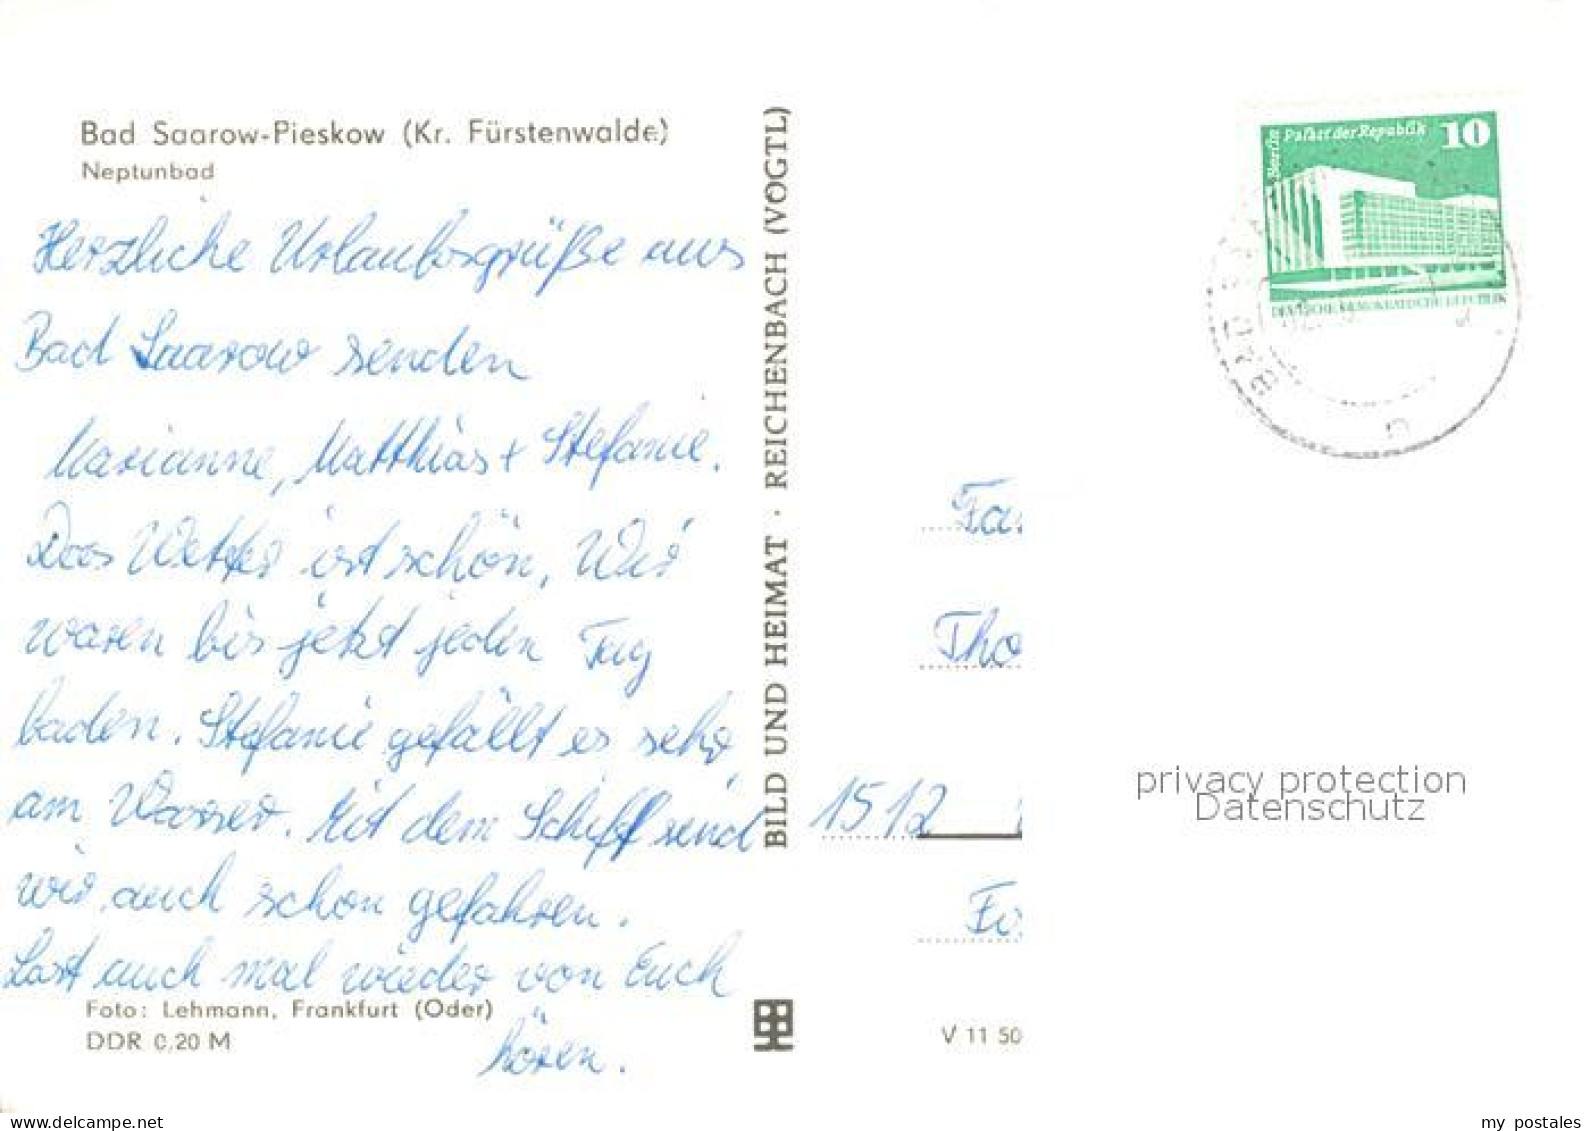 Bad Saarow-Pieskow (Kr. Fürstenwalde)
Neptunbad
Herzliche Urlaubsgrüße aus
Bad Saarow senden
Marianne, Matthias + Stefanie.
Das Wetter ist schön, Wir
waren bis jetzt jeden Tag
baden. Stefanie gefällt es sehr
am Wasser. Mit dem Schiff sind
wir auch schon gefahren.
Last auch mal wieder von Euch
hören.
Foto: Lehmann, Frankfurt (Oder)
DDR 0,20 M
BILD UND HEIMAT · REICHENBACH (VOGTL)
Berlin Palast der Republik 10
DEUTSCHE DEMOKRATISCHE REPUBLIK
BAD SAA
Fa
Tho
1512
V 11 50
privacy protection
Datenschutz
delcampe.net
my_postales